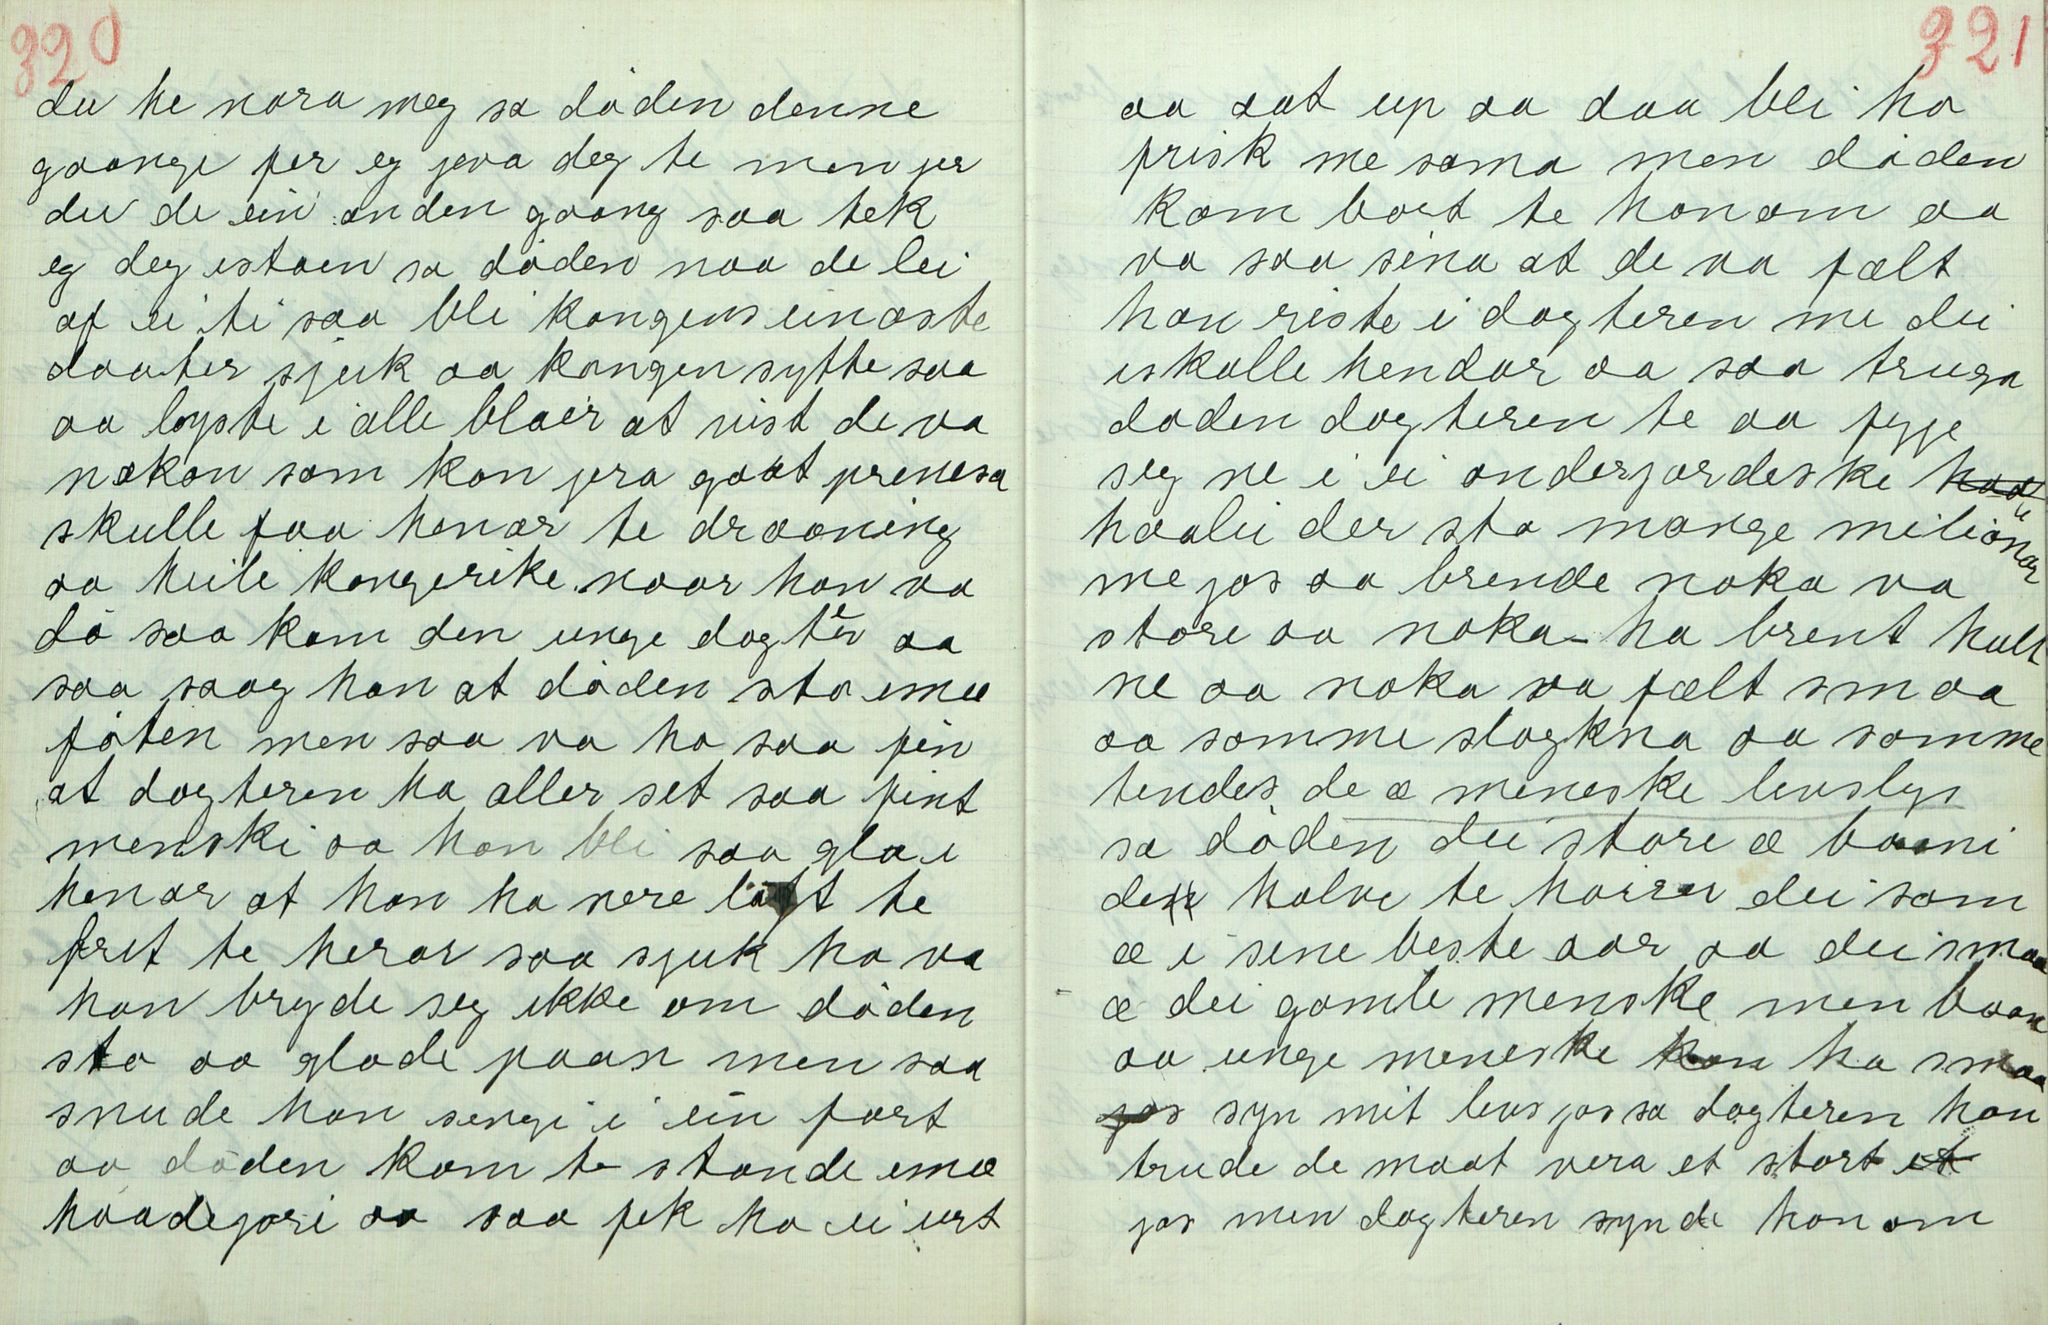 320
du he nara meg sa døden denne
gaange fer eg jeva deg te men jer
du de ein anden gaang saa tek
eg deg istaen sa døden naa de lei
af ei ti saa blei kongens einaste
daater sjuk aa kongen sytte saa
aa loyste i alle blaer at vist de va
nokon som kon jera gaat prensesa
skulle faa henar te draaning
aa heile kongerike naar han va
dø saa kom den unge dagter aa
saa saag han at døden sto imæ
føten men saa va ho saa fin
at dagteren ha aller set saa fint
menski aa han blei saa gla i
henar at han ha vere
frit te herar saa sjuk ho va
han bryde seg ikke om døden
sto aa glade paan men saa
snude han sengi i ein fart
aa døden kom te stande imæ
haadejori aa saa fek ho ei urt
321
aa sat up aa daa blei ho
frisk me soma men døden
kom bort te honom aa
va saa sina at de va fælt
han riste i dagteren me dei
iskalle hendar aa saa truga
døden dagteren te aa fyjje
seg ne i ei onderjordeske
haalei der sto mange milionar
me jos aa brende noka va
store aa noka ha brent halt
ne aa noka va fælt smaa
aa somme slagkna aa somme
tendes de æ meneske livslys
sa døden dei store æ baani
dei halve te hoirer dei som
æ i sene beste aar aa dei smaa
æ dei gamle menske men baan
aa unge meneske kan ha smaa
jos syn mit livs jos sa dagteren han
trude de maat vera et stort et
jos men dagteren synde honom